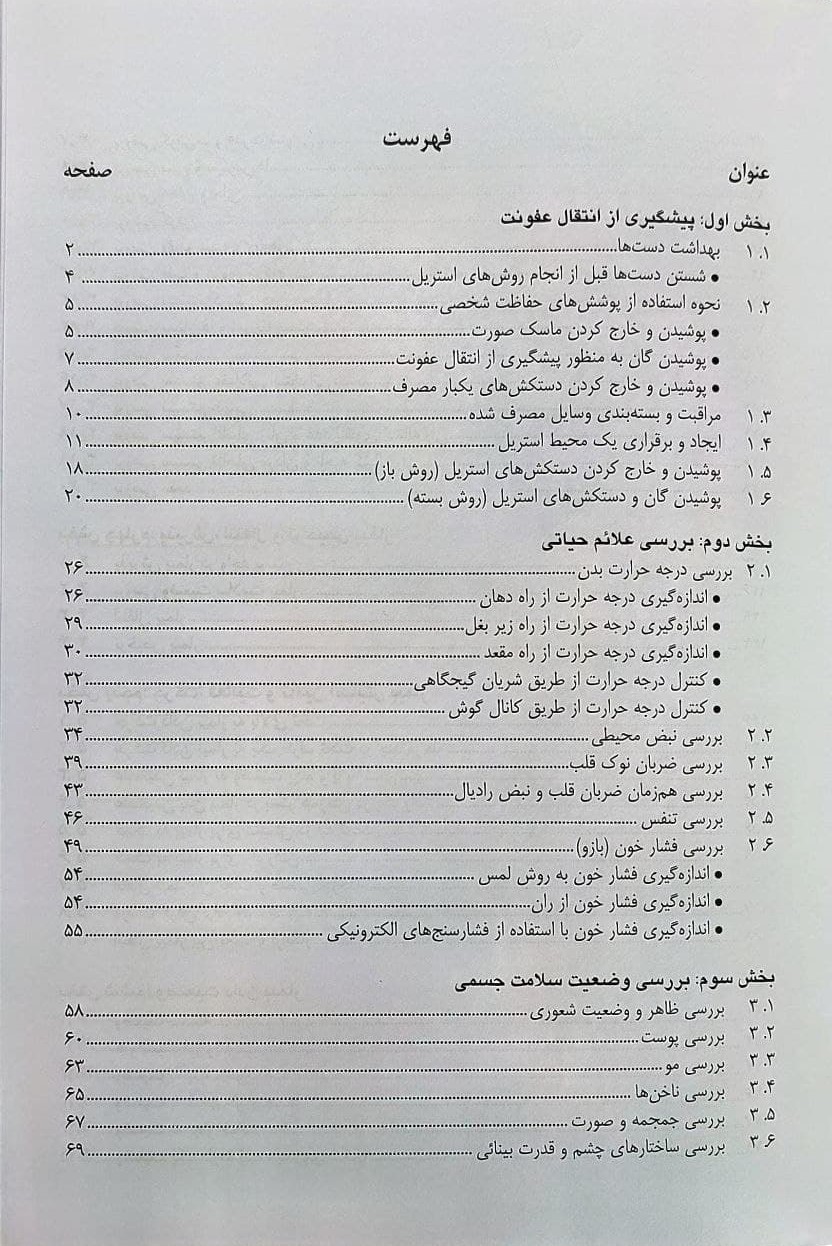 فهرست
عنوان صفحه
بخش اول: پیشگیری از انتقال عفونت
۱.۱ بهداشت دست‌ها ۲
• شستن دست‌ها قبل از انجام روش‌های استریل ۴
۱.۲ نحوه استفاده از پوشش‌های حفاظت شخصی ۵
• پوشیدن و خارج کردن ماسک صورت ۵
• پوشیدن گان به منظور پیشگیری از انتقال عفونت ۷
• پوشیدن و خارج کردن دستکش‌های یکبار مصرف ۸
۱.۳ مراقبت و بسته‌بندی وسایل مصرف شده ۱۰
۱.۴ ایجاد و برقراری یک محیط استریل ۱۱
۱.۵ پوشیدن و خارج کردن دستکش‌های استریل (روش باز) ۱۸
۱.۶ پوشیدن گان و دستکش‌های استریل (روش بسته) ۲۰
بخش دوم: بررسی علائم حیاتی
۲.۱ بررسی درجه حرارت بدن ۲۶
• اندازه‌گیری درجه حرارت از راه دهان ۲۶
• اندازه‌گیری درجه حرارت از راه زیر بغل ۲۹
• اندازه‌گیری درجه حرارت از راه مقعد ۳۰
• کنترل درجه حرارت از طریق شریان گیجگاهی ۳۲
• کنترل درجه حرارت از طریق کانال گوش ۳۲
۲.۲ بررسی نبض محیطی ۳۴
۲.۳ بررسی ضربان نوک قلب ۳۹
۲.۴ بررسی هم‌زمان ضربان قلب و نبض رادیال ۴۳
۲.۵ بررسی تنفس ۴۶
۲.۶ بررسی فشار خون (بازو) ۴۹
• اندازه‌گیری فشار خون به روش لمس ۵۴
• اندازه‌گیری فشار خون از ران ۵۴
• اندازه‌گیری فشار خون با استفاده از فشارسنج‌های الکترونیکی ۵۵
بخش سوم: بررسی وضعیت سلامت جسمی
۳.۱ بررسی ظاهر و وضعیت شعوری ۵۸
۳.۲ بررسی پوست ۶۰
۳.۳ بررسی مو ۶۳
۳.۴ بررسی ناخن‌ها ۶۵
۳.۵ بررسی جمجمه و صورت ۶۷
۳.۶ بررسی ساختارهای چشم و قدرت بینائی ۶۹